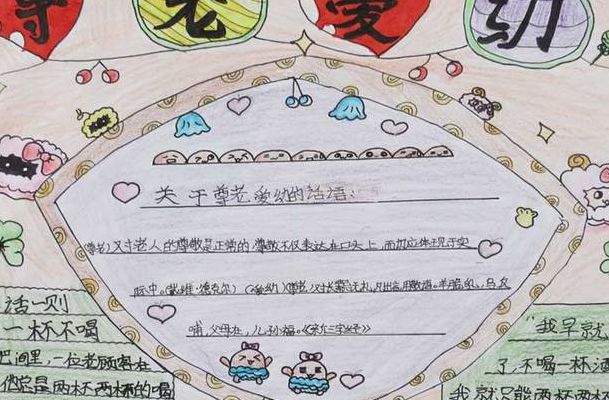 尊老爱幼
关于尊老爱幼的话语:
(尊老)对老人的尊敬是正常的,尊敬不仅表达在口头上,而且应体现于实
际中。(戴维·德克尔) (爱幼)尊老对长辈须礼,凡出言用敬语。羊脂乳,乌反
哺,父母在,儿孙福。《宋尔三字经》
话一则
一杯不喝
巴间里,一位老顾客在
他总是两杯两杯的喝
"我早就
了,不喝一杯酒
我就只能两杯两杯